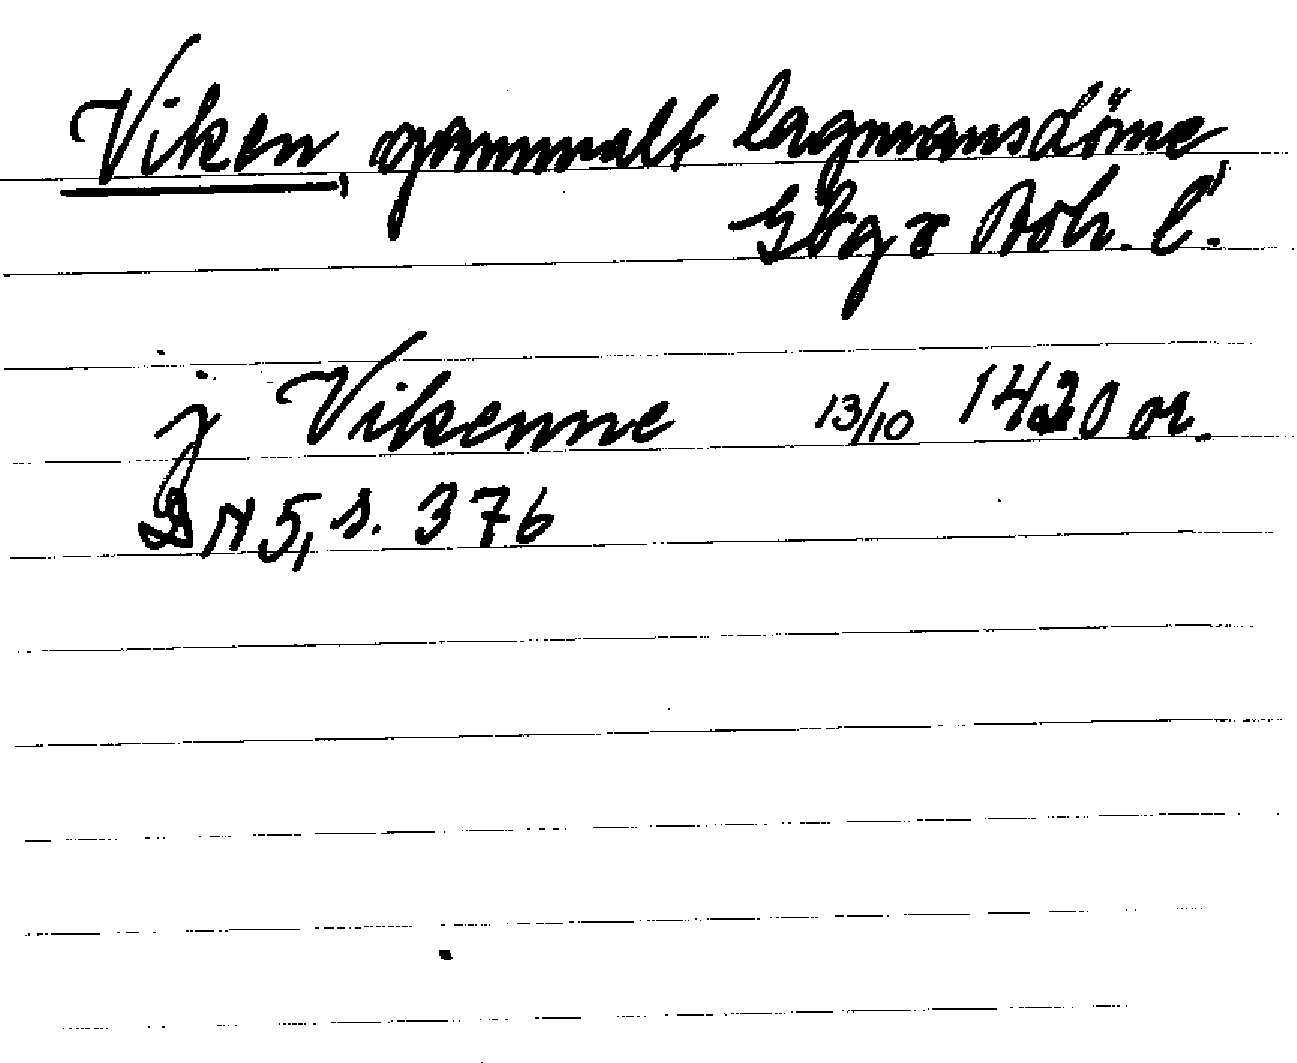 Viken, gammalt lagmansdöme,
Gbgs o Boh. l.
j Vikenne 13/10 1420 or.
DN 5, s. 376